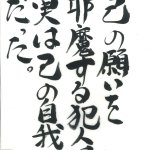 己の願いを
邪魔する犯人
実は己の自我
だった。